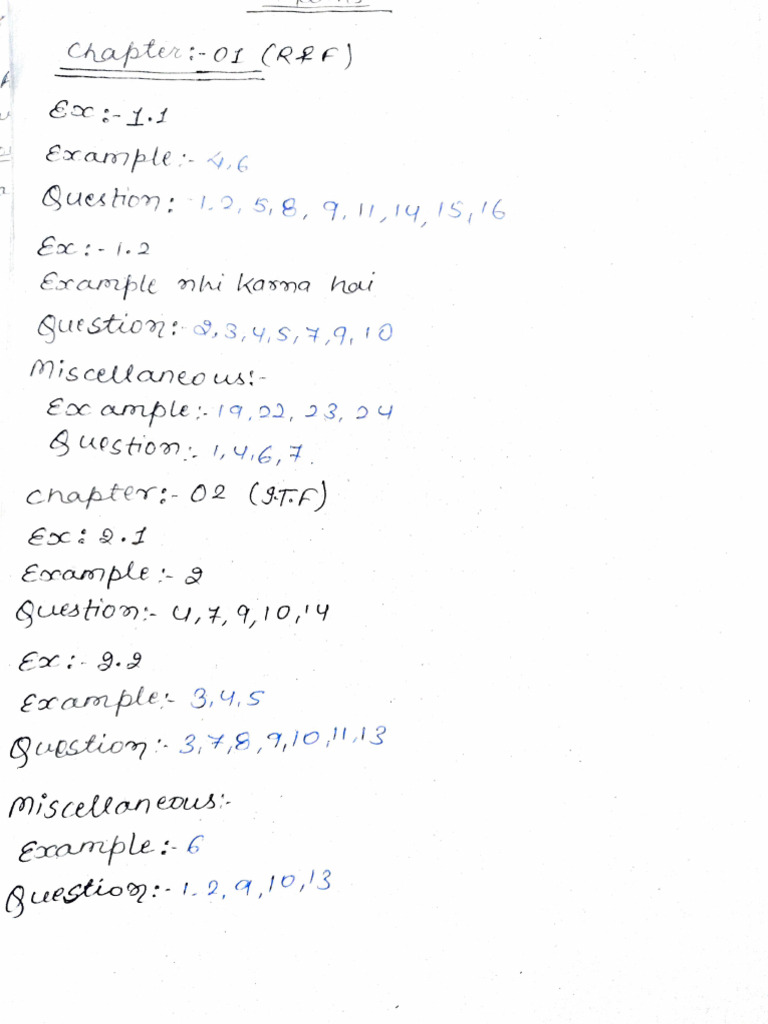 Chapter:- 01 (R&F)
Ex:- 1.1
Example:- 4,6
Question:- 1,2,5,8,9,11,14,15,16
Ex:- 1.2
Example nhi karna hai
Question:- 2,3,4,5,7,9,10
Miscellaneous:-
Example:- 19,22,23,24
Question:- 1,4,6,7.
Chapter:- 02 (I.T.F)
Ex: 2.1
Example:- 2
Question:- 4,7,9,10,14
Ex:- 2.2
Example:- 3,4,5
Question:- 3,7,8,9,10,11,13
Miscellaneous:-
Example:- 6
Question:- 1,2,9,10,13